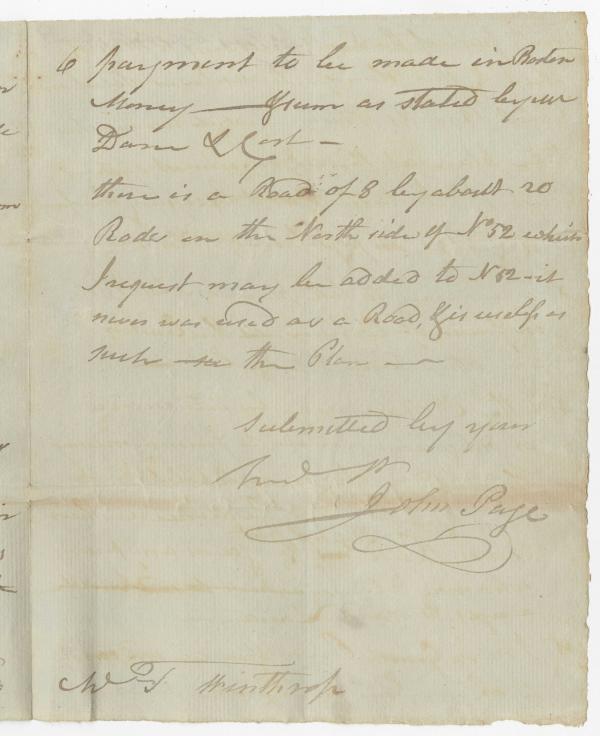 6 payment to be made in Boston
Money — & sum as stated by your
Dane & Cost —
there is a Road of 8 by about 20
Rods on the North side of No 52 which
I request may be added to N 52 - it
never was used as a Road, & is useless as
such — see the Plan —
Submitted by your
John Page
Winthrop